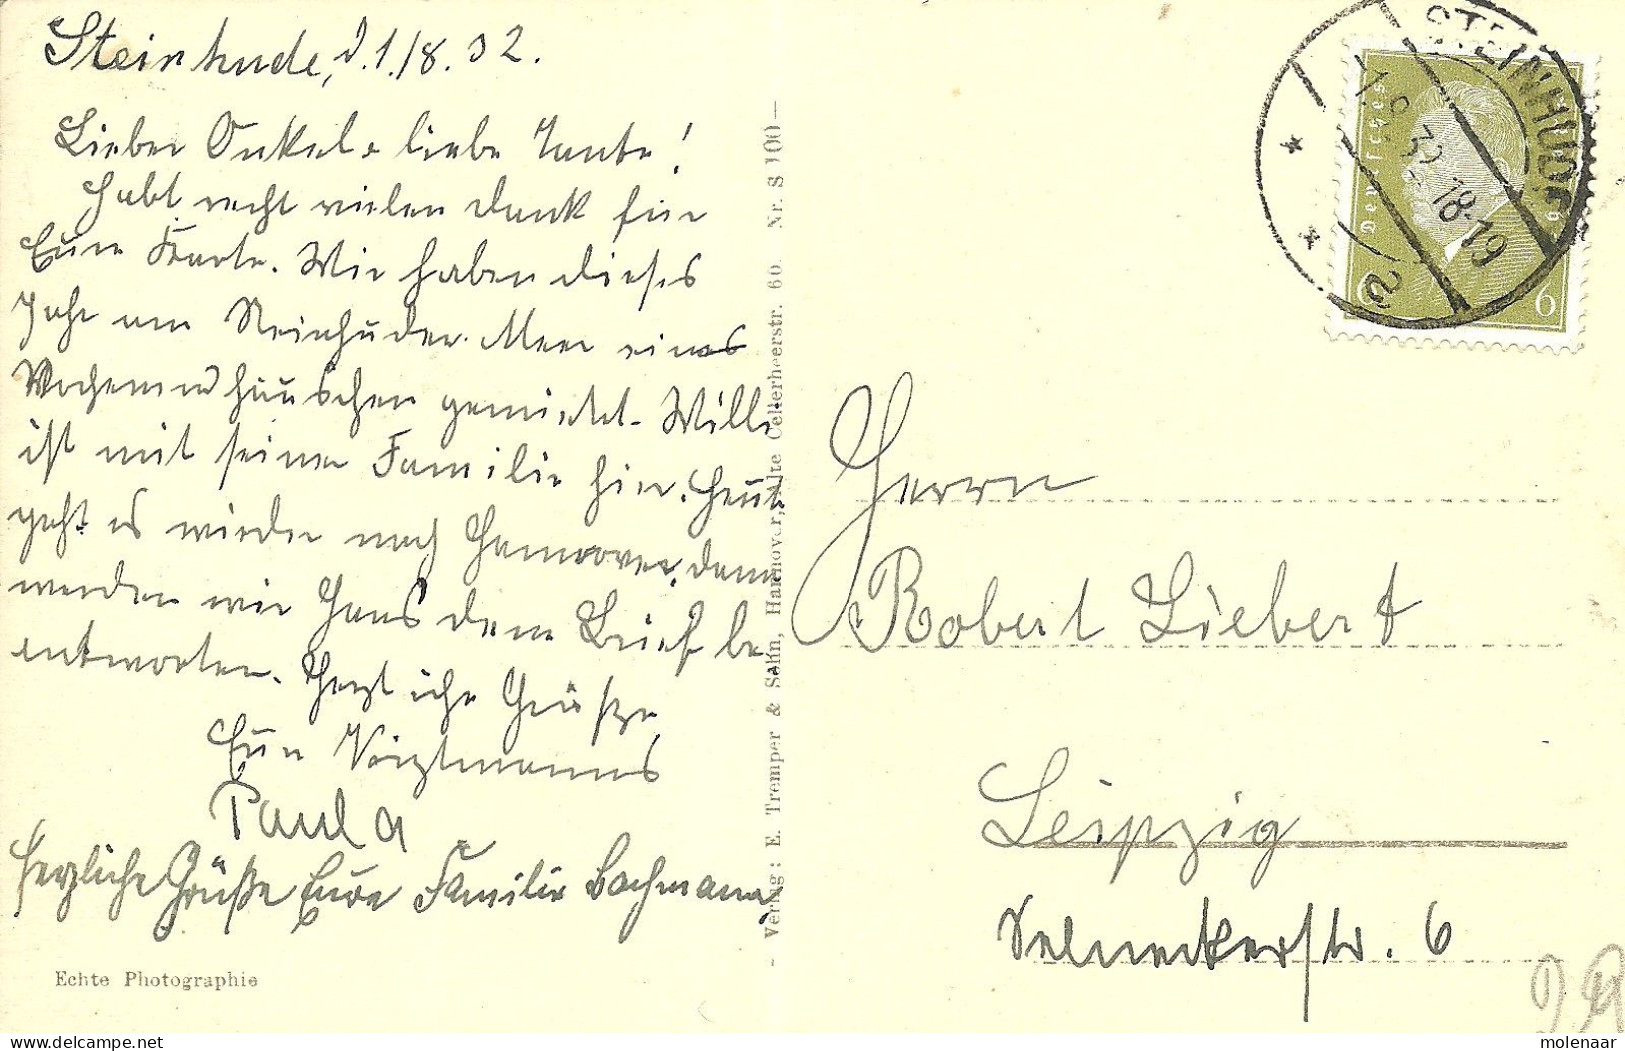 Steinhude, d. 1./8. 32.
Lieber Onkel u. liebe Tante!
Habt recht vielen Dank für
Eure Karte. Wir haben dieses
Jahr am Steinhuder Meer eines
Wochenendhäuschen gemietet. Willi
ist mit seiner Familie hier. Heute
geht es wieder nach Hannover, dann
werden wir Hans dem Brief be
antworten. Herzliche Grüße
Eure Voigtmanns
Paula
Herzliche Grüße Eure Familie Bachmann
Echte Photographie
- Verlag: E. Tremper & Sohn, Hannover, Alte Cellerheerstr. 60. Nr. S 100 -
STEINHUDE
1.8.32 18-19
a
Deutsches
6
Herrn
Robert Liebert
Leipzig
Selneckerstr. 6